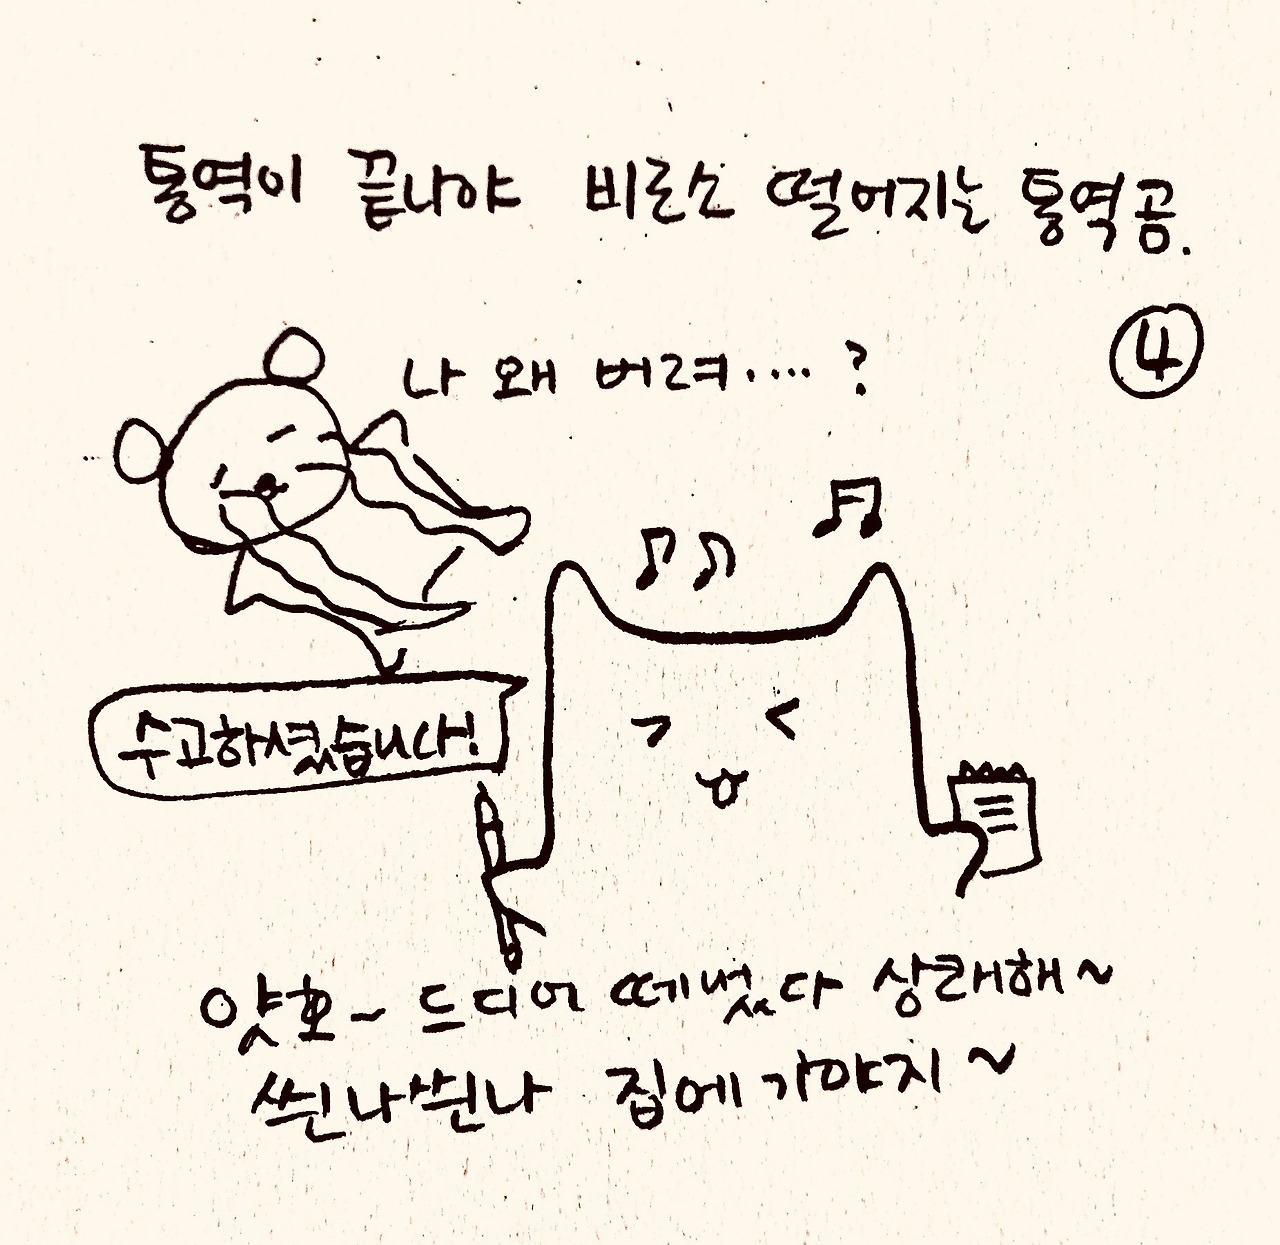 통역이 끝나야 비로소 떨어지는 통역곰.
④
나 왜 버려····?
수고하셨습니다!
얏호~ 드디어 떼벘다 상쾌해~
씐나씐나 집에 가야지~